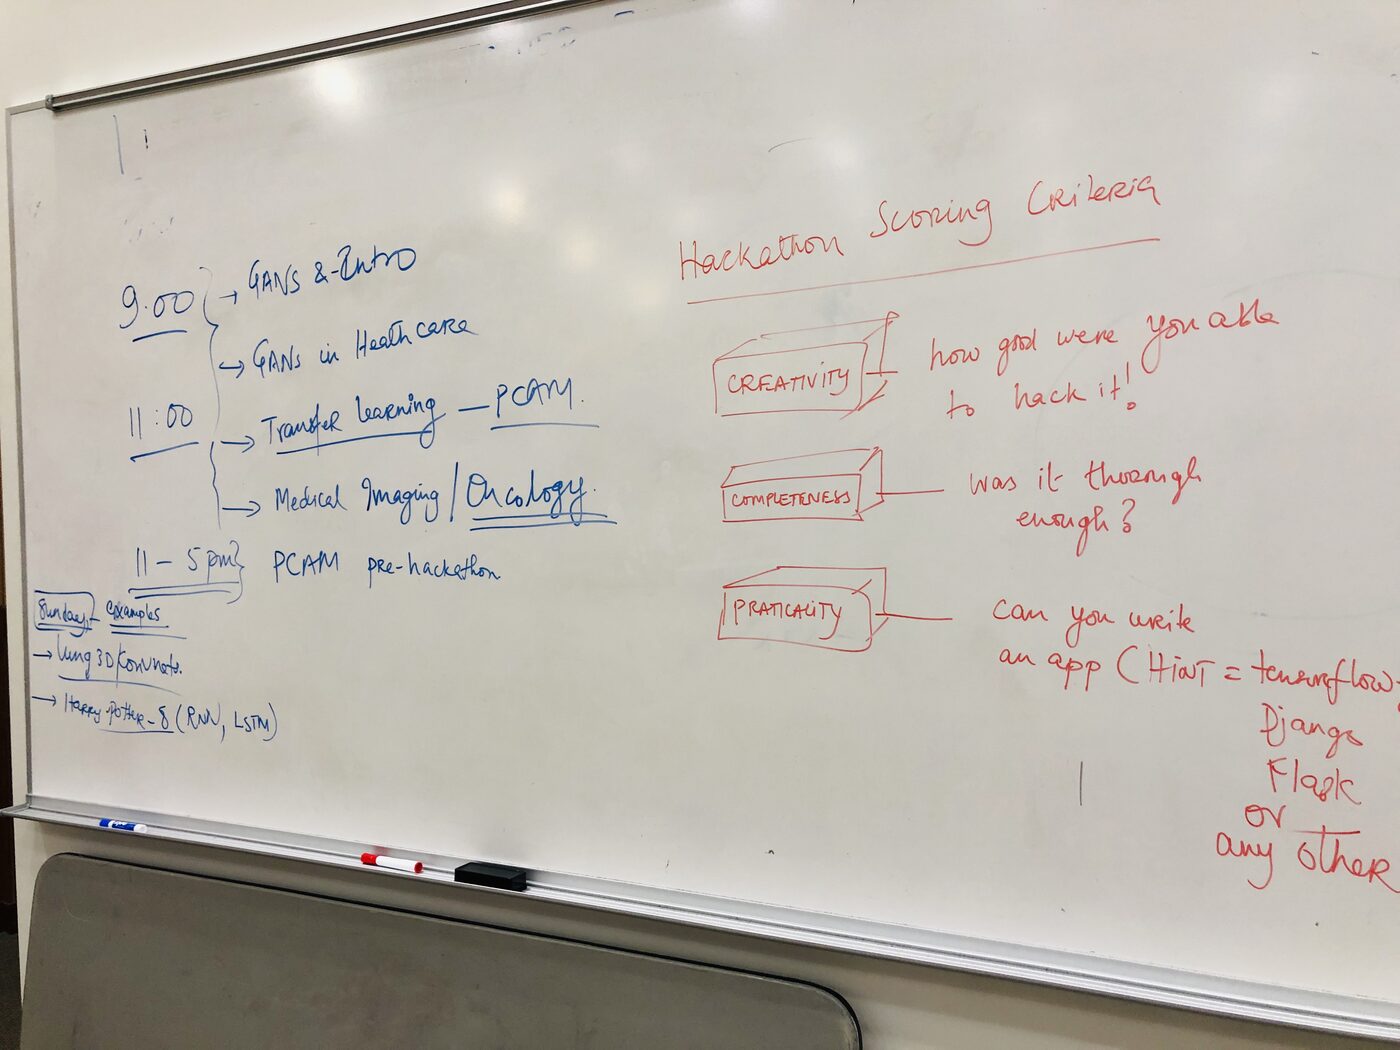 9.00
→ GANS & Intro
→ GANs in Healthcare
11:00
→ Transfer learning — PCAM.
→ Medical Imaging / Oncology.
11 – 5 pm} PCAM pre-hackathon
Sunday - examples
→ lung 3D
→ Harry Potter - 8 (RNN, LSTM)
Hackathon Scoring Criteria
CREATIVITY — how good were you able
to hack it!
COMPLETENESS — was it thorough
enough?
PRATICALITY — can you write
an app (HINT = tensorflow,
Django
Flask
or
any other